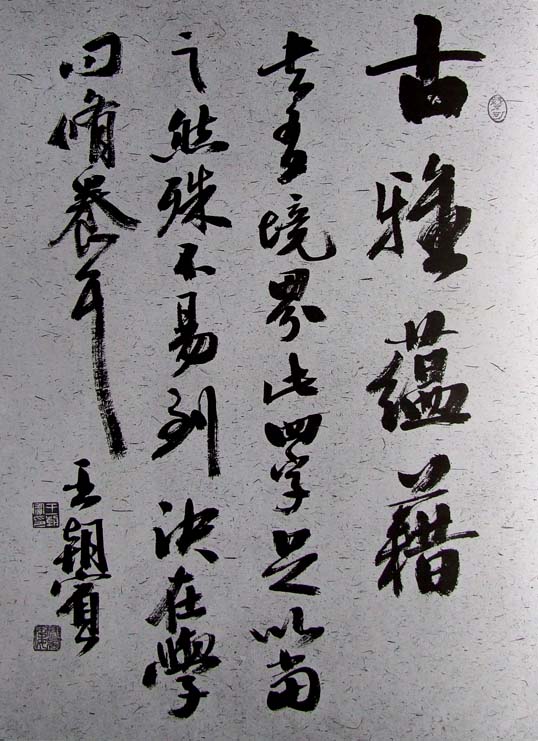 古雅蘊藉
境界此四字足以當
之然殊不易到決在學
問脩養耳
王朝賓